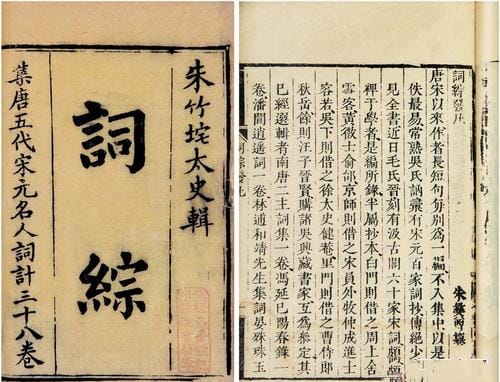 朱竹垞太史輯
詞綜
集唐五代宋元名人詞計三十八卷
詞綜發凡
唐宋以來作者長短句每別為一編不入集中以是
佚最易常熟吳氏訥彚有宋元百家詞抄傳絕少
見全書近日毛氏晉刻有汲古閣六十家宋詞頗
裨于學者是編所錄半屬抄本白門則借之周上舍
雪客黃徵士俞邰京師則借之宋員外牧仲成進士
容若吳下則借之徐太史健菴里門則借之曹侍郎
秋岳餘則汪子晉賢購諸吳興藏書家互為參定其
已經選輯者南唐二主詞集一卷馮延巳陽春錄一
卷潘閬逍遙詞一卷林逋和靖先生集詞晏殊珠玉